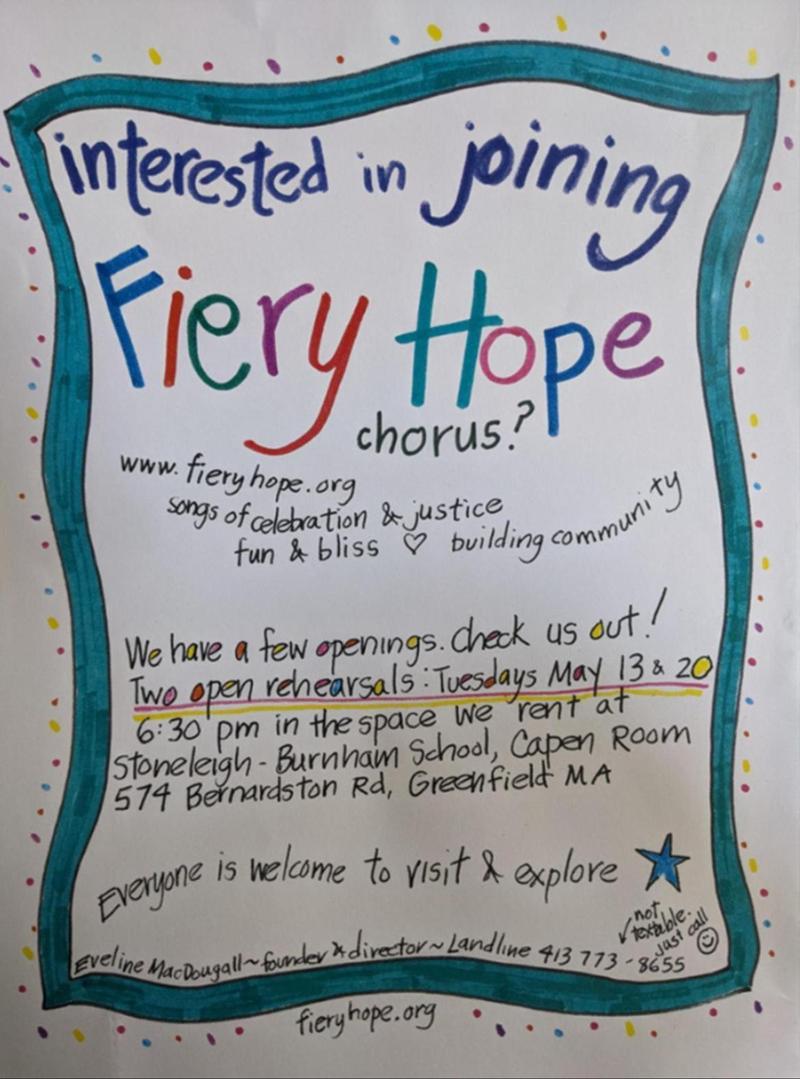 interested in joining
Fiery Hope
chorus?
www.fieryhope.org
songs of celebration & justice
fun & bliss ♡ building community
We have a few openings. Check us out!
Two open rehearsals: Tuesdays May 13 & 20
6:30 pm in the space we rent at
Stoneleigh-Burnham School, Capen Room
574 Bernardston Rd, Greenfield MA
Everyone is welcome to visit & explore
not
textable.
just call
Eveline MacDougall ~ founder & director ~ Landline 413 773-8655
fieryhope.org